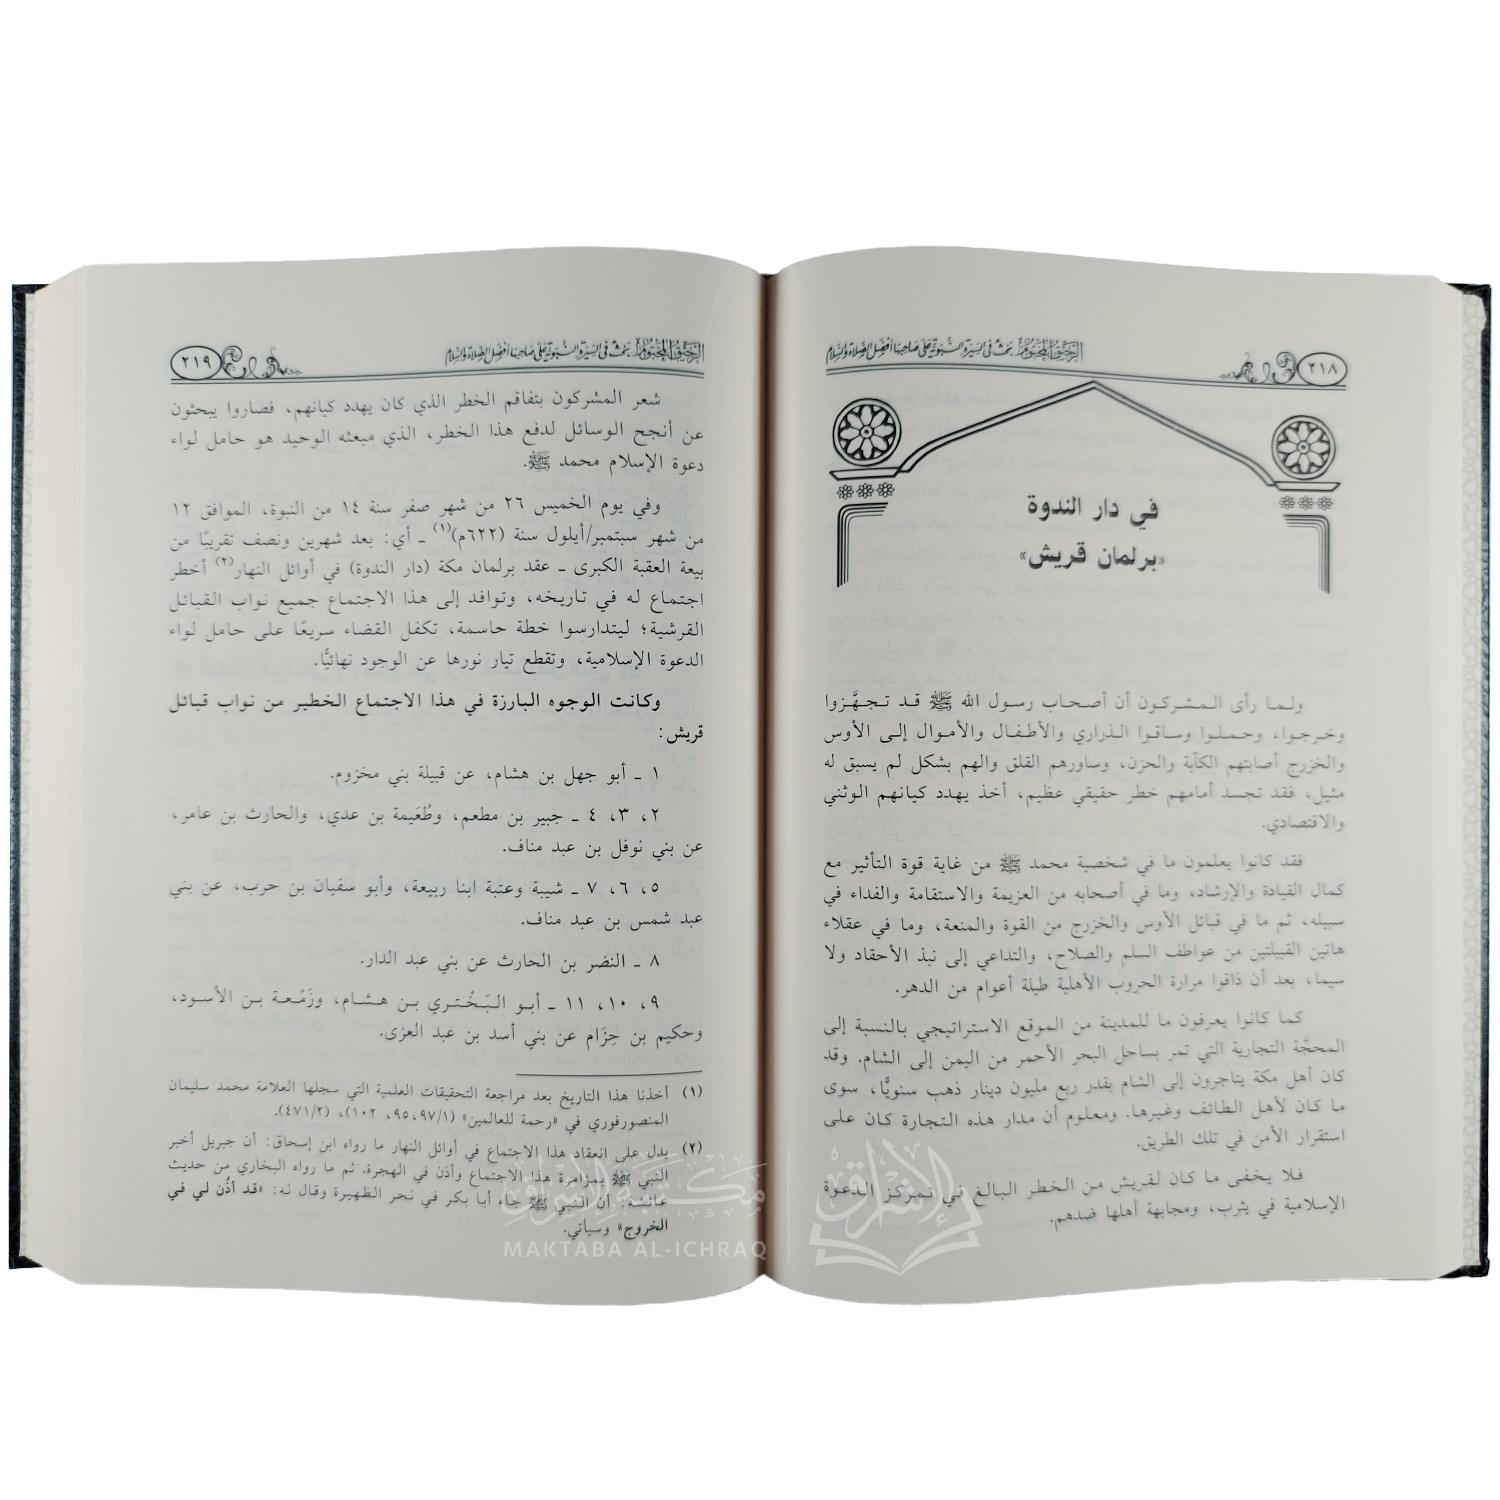 ٢١٨
الرحيق المختوم بحث في السيرة النبوية على صاحبها أفضل الصلاة والسلام
في دار الندوة
«برلمان قريش»
ولما رأى المشركون أن أصحاب رسول الله ﷺ قد تجهَّزوا
وخرجوا، وحملوا وساقوا الذراري والأطفال والأموال إلى الأوس
والخزرج أصابتهم الكآبة والحزن، وساورهم القلق والهم بشكل لم يسبق له
مثيل، فقد تجسد أمامهم خطر حقيقي عظيم، أخذ يهدد كيانهم الوثني
والاقتصادي.
فقد كانوا يعلمون ما في شخصية محمد ﷺ من غاية قوة التأثير مع
كمال القيادة والإرشاد، وما في أصحابه من العزيمة والاستقامة والفداء في
سبيله، ثم ما في قبائل الأوس والخزرج من القوة والمنعة، وما في عقلاء
هاتين القبيلتين من عواطف السلم والصلاح، والتداعي إلى نبذ الأحقاد ولا
سيما، بعد أن ذاقوا مرارة الحروب الأهلية طيلة أعوام من الدهر.
كما كانوا يعرفون ما للمدينة من الموقع الاستراتيجي بالنسبة إلى
المحجَّة التجارية التي تمر بساحل البحر الأحمر من اليمن إلى الشام. وقد
كان أهل مكة يتاجرون إلى الشام بقدر ربع مليون دينار ذهب سنويًّا، سوى
ما كان لأهل الطائف وغيرها. ومعلوم أن مدار هذه التجارة كان على
استقرار الأمن في تلك الطريق.
فلا يخفى ما كان لقريش من الخطر البالغ في تمركز الدعوة
الإسلامية في يثرب، ومجابهة أهلها ضدهم.
٢١٩
الرحيق المختوم بحث في السيرة النبوية على صاحبها أفضل الصلاة والسلام
شعر المشركون بتفاقم الخطر الذي كان يهدد كيانهم، فصاروا يبحثون
عن أنجح الوسائل لدفع هذا الخطر، الذي مبعثه الوحيد هو حامل لواء
دعوة الإسلام محمد ﷺ.
وفي يوم الخميس ٢٦ من شهر صفر سنة ١٤ من النبوة، الموافق ١٢
من شهر سبتمبر/أيلول سنة (٦٢٢م)(١) ـ أي: بعد شهرين ونصف تقريبًا من
بيعة العقبة الكبرى ـ عقد برلمان مكة (دار الندوة) في أوائل النهار(٢) أخطر
اجتماع له في تاريخه، وتوافد إلى هذا الاجتماع جميع نواب القبائل
القرشية؛ ليتدارسوا خطة حاسمة، تكفل القضاء سريعًا على حامل لواء
الدعوة الإسلامية، وتقطع تيار نورها عن الوجود نهائيًّا.
وكانت الوجوه البارزة في هذا الاجتماع الخطير من نواب قبائل
قريش:
١ ـ أبو جهل بن هشام، عن قبيلة بني مخزوم.
٢، ٣، ٤ ـ جبير بن مطعم، وطُعَيمة بن عدي، والحارث بن عامر،
عن بني نوفل بن عبد مناف.
٥، ٦، ٧ ـ شيبة وعتبة ابنا ربيعة، وأبو سفيان بن حرب، عن بني
عبد شمس بن عبد مناف.
٨ ـ النضر بن الحارث عن بني عبد الدار.
٩، ١٠، ١١ ـ أبو البَخْتري بن هشام، وزَمْعة بن الأسود،
وحكيم بن حِزَام عن بني أسد بن عبد العزى.
(١) أخذنا هذا التاريخ بعد مراجعة التحقيقات العلمية التي سجلها العلامة محمد سليمان
المنصورفوري في «رحمة للعالمين» (١/٩٧، ٩٥، ١٠٢)، (٢/٤٧١).
(٢) يدل على انعقاد هذا الاجتماع في أوائل النهار ما رواه ابن إسحاق: أن جبريل أخبر
النبي ﷺ بمؤامرة هذا الاجتماع وأذن في الهجرة. ثم ما رواه البخاري من حديث
عائشة: أن النبي ﷺ جاء أبا بكر في نحر الظهيرة وقال له: «قد أذن لي في
الخروج» وسيأتي.
مكتبة الإشراق
MAKTABA AL-ICHRAQ
الإشراق